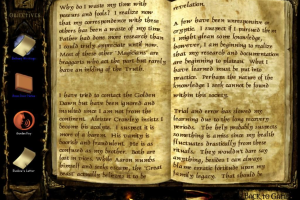 OBJECTIVES
Why do I waste my time with
poseurs and fools? I realize now
that my correspondence with these
others has been a waste of my time.
Father had done more research than
I could truly appreciate until now.
Most of these other "Magicians" are
braggarts who at the most but rarely
have an inkling of the Truth.
I have tried to contact the Golden
Dawn but have been unwanted and
banished since I am not from the
continent. Aleister Crowley insists I
become his acolyte. I suspect it is
more of a farce. His vanity is
foolish and fraudulent. He is as
confused as my brother. Both are
lost in
While Aaron numbs
himself and
the "Great
Beast" actually believes it to be
revelation.
A few have been unresponsive or
cryptic. I suspect if I pursued these
I might glean some knowledge,
however, I am beginning to realize
that my research and documentation
are beginning to plateau. What I
have learned must be put into
practice. Perhaps the nature of the
knowledge I seek cannot be found
within this society.
Trial and error has slowed my
learning due to the long recovery
periods. The help probably suspects
something is amiss since my health
fluctuates drastically from these
rituals. They wouldn't dare say
anything, besides I can always
tell
erratic fortitude from my
being a legacy. That should be
Back to Game